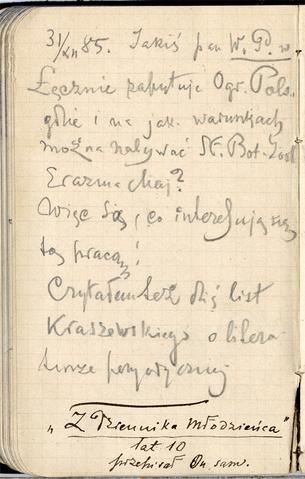 31/XII 85. Jakiś pan W. P. w
Łęcznie zapytuje Ogr. Pols.
gdzie i na jak. warunkach
można nabywać Sł. Bot.-Zool
Erazma Maj?
Więc są, co interesują się
tą pracą!
Czytałem też dziś list
Kraszewskiego o litera
turze peryodycznej
„Z Dziennika Młodzieńca"
lat 10
przepisał On sam.